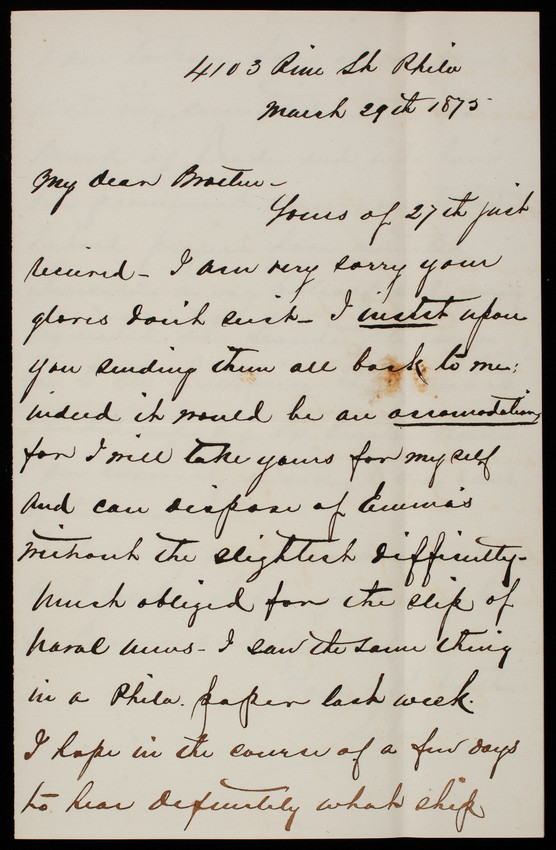 4103 Pine St Phila
March 29th 1875
My Dear Brother -
Yours of 27th just
recieved - I am very sorry your
gloves don't suit - I insist upon
you sending them all back to me;
indeed it would be an accomodation,
for I will take yours for my self
and can dispose of Emma's
without the slightest difficulty -
Much obliged for the slip of
naval news - I saw the same thing
in a Phila. paper last week.
I hope in the course of a few days
to hear definitely what ship